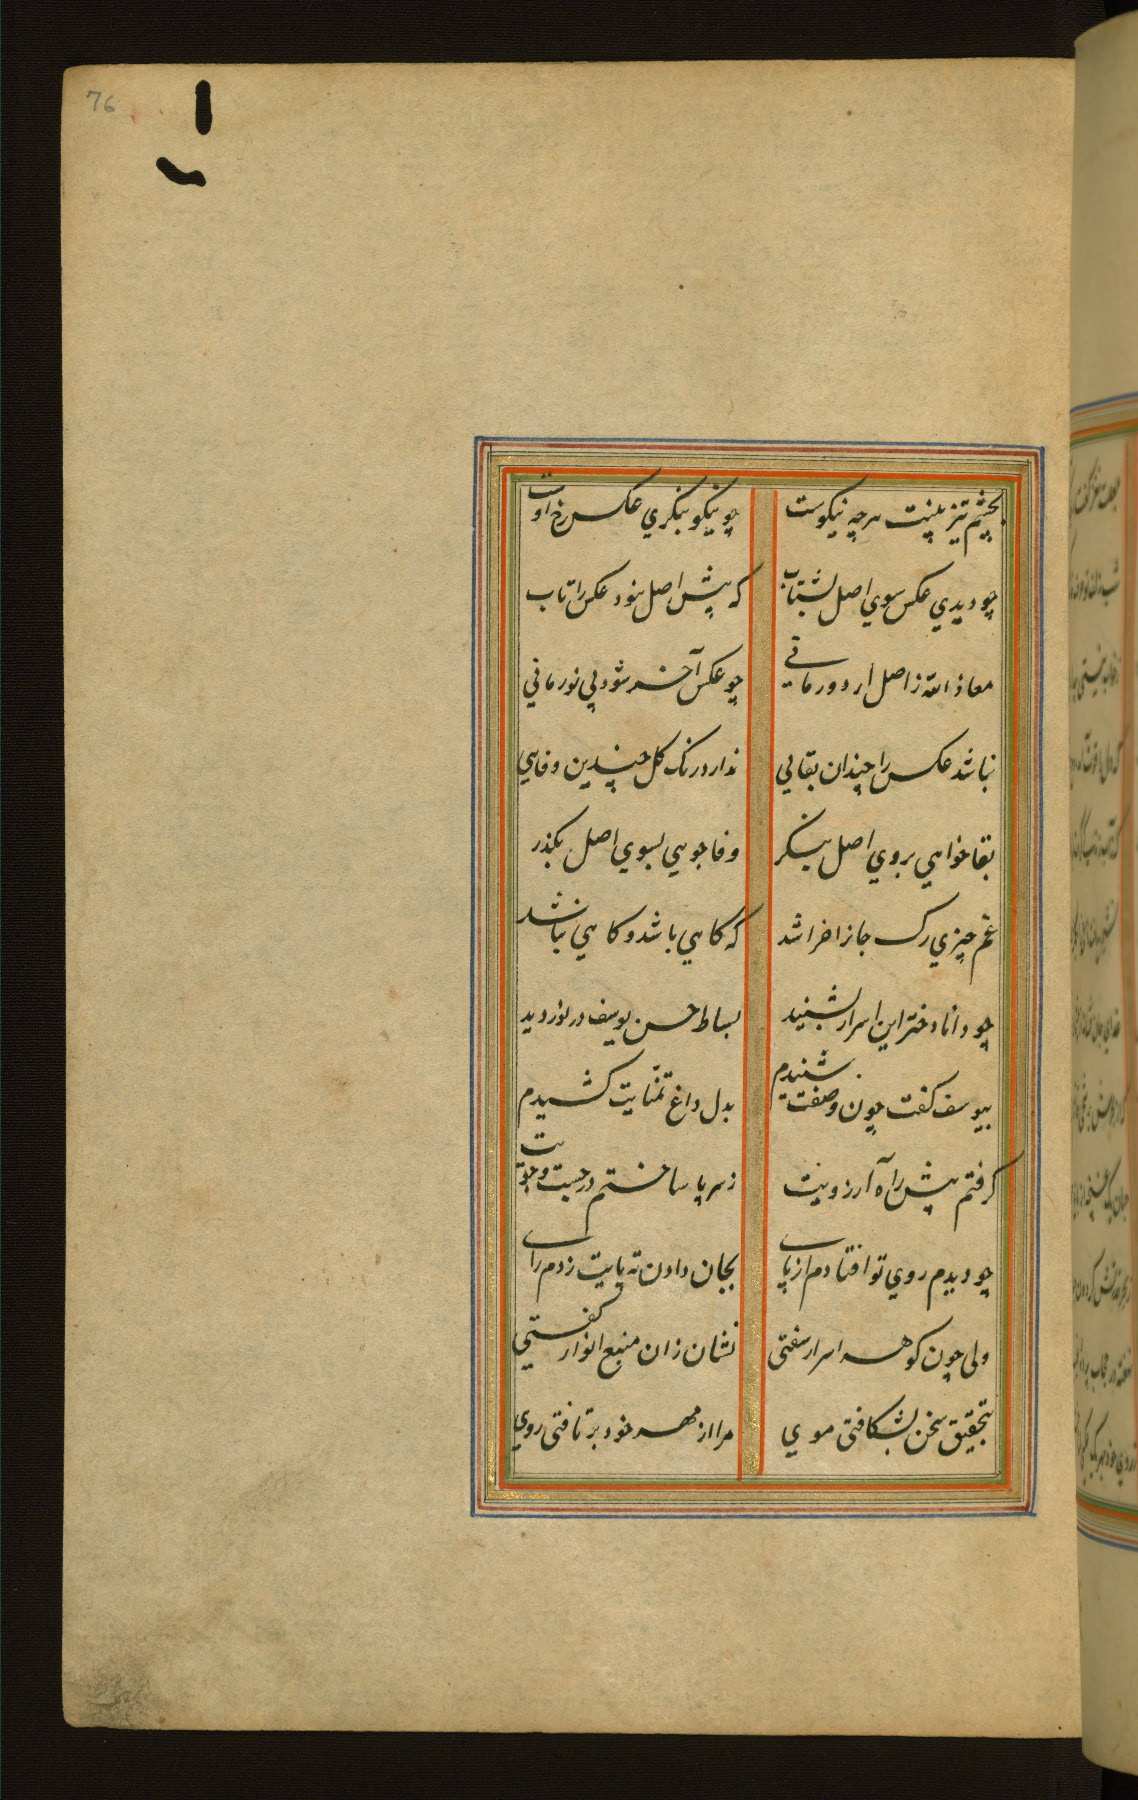 76
بچشم تیز بینت هرچه نیکوست چو نیکو بنگری عکس رخ اوست
چو دیدی عکس سوی اصل بشتاب که پیش اصل نبود عکس را تاب
معاذ الله ز اصل ار دور مانی چو عکس آخر شود بی نور مانی
نباشد عکس را چندان بقایی ندارد رنک کل چندین وفایی
بقا خواهی بروی اصل بنکر وفا جویی بسوی اصل بکذر
غم چیزی رک جانرا خراشد که کاهی باشد و کاهی نباشد
چو دانا دختر این اسرار بشنید بساط حسن یوسف در نوردید
بیوسف کفت چون وصفت شنیدم بدل داغ تمنایت کشیدم
کرفتم پیش راه آرزویت ز سر پا ساختم در جست و جویت
چو دیدم روی تو افتادم از پای بجان دادن ته پایت زدم رای
ولی چون کوهر اسرار سفتی نشان زان منبع انوار کفتی
بتحقیق سخن بشکافتی موی مرا از مهر خود برتافتی روی